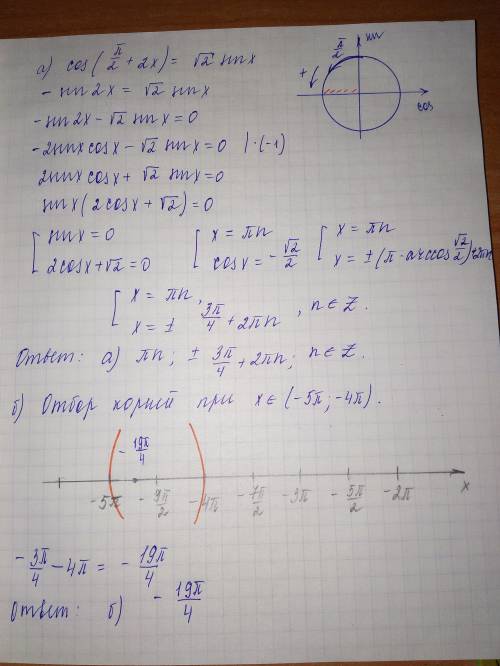 а) cos(π/2 + 2x) = √2 sin x
- sin 2x = √2 sin x
- sin 2x - √2 sin x = 0
- 2 sin x cos x - √2 sin x = 0 | · (-1)
2 sin x cos x + √2 sin x = 0
sin x (2 cos x + √2) = 0
sin
π/2
+
cos
[ sin x = 0 [ x = πn [ x = πn
2 cos x + √2 = 0 cos x = - √2/2 x = ± (π - arccos √2/2) + 2πn
[ x = πn,
x = ± 3π/4 + 2πn , n ∈ Z.
Ответ: а) πn; ± 3π/4 + 2πn; n ∈ Z.
б) Отбор корней при x ∈ (-5π; -4π).
- 19π/4
-5π - 9π/2 -4π - 7π/2 -3π - 5π/2 -2π x
- 3π/4 - 4π = - 19π/4
Ответ: б) - 19π/4